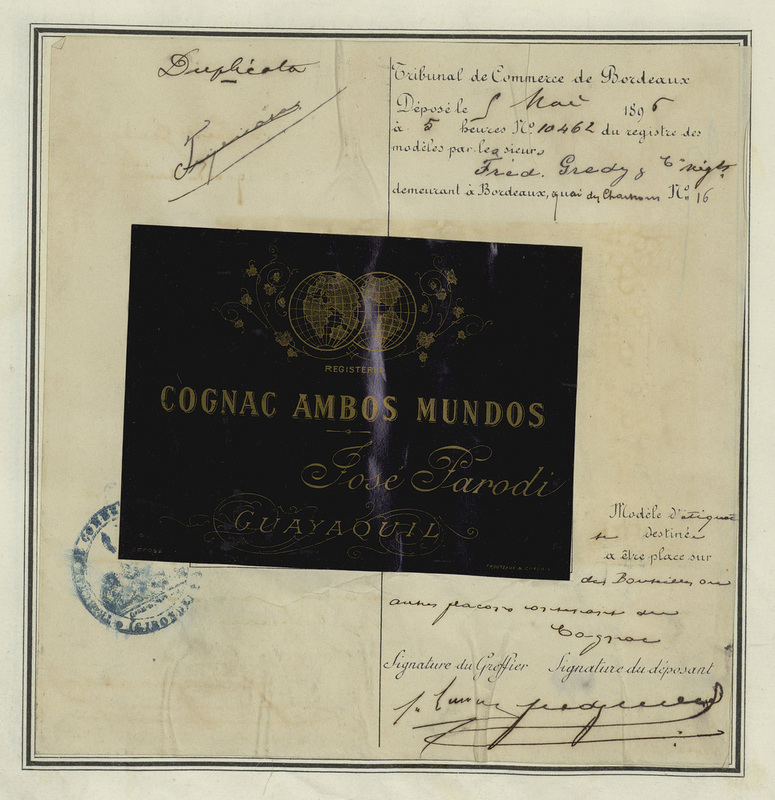 Duplicata
Tribunal de Commerce de Bordeaux
Déposé le 5 Mai 1896
à 5 heures No 10462 du registre des
modèles par les sieurs
Fréd. Gredy & Cie négts
demeurant à Bordeaux, quai des Chartrons No 16
REGISTERED
COGNAC AMBOS MUNDOS
José Parodi
GUAYAQUIL
Modèle d'étiquette
destinée
a être place sur
des Bouteilles ou
autres flacons contenant du
Cognac
Signature du Greffier Signature du déposant